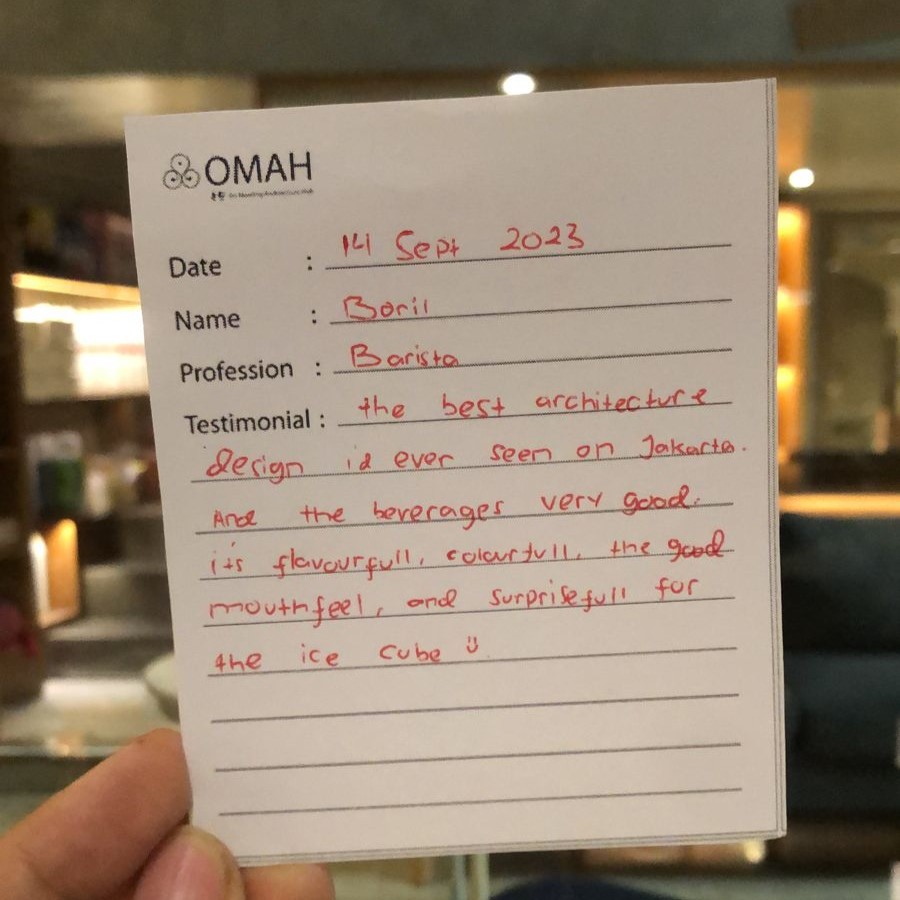 OMAH
Date : 14 Sept 2023
Name : Boril
Profession : Barista
Testimonial : the best architecture
design id ever seen on Jakarta.
And the beverages very good.
it's flavourfull, colourfull, the good
mouthfeel, and surprisefull for
the ice cube